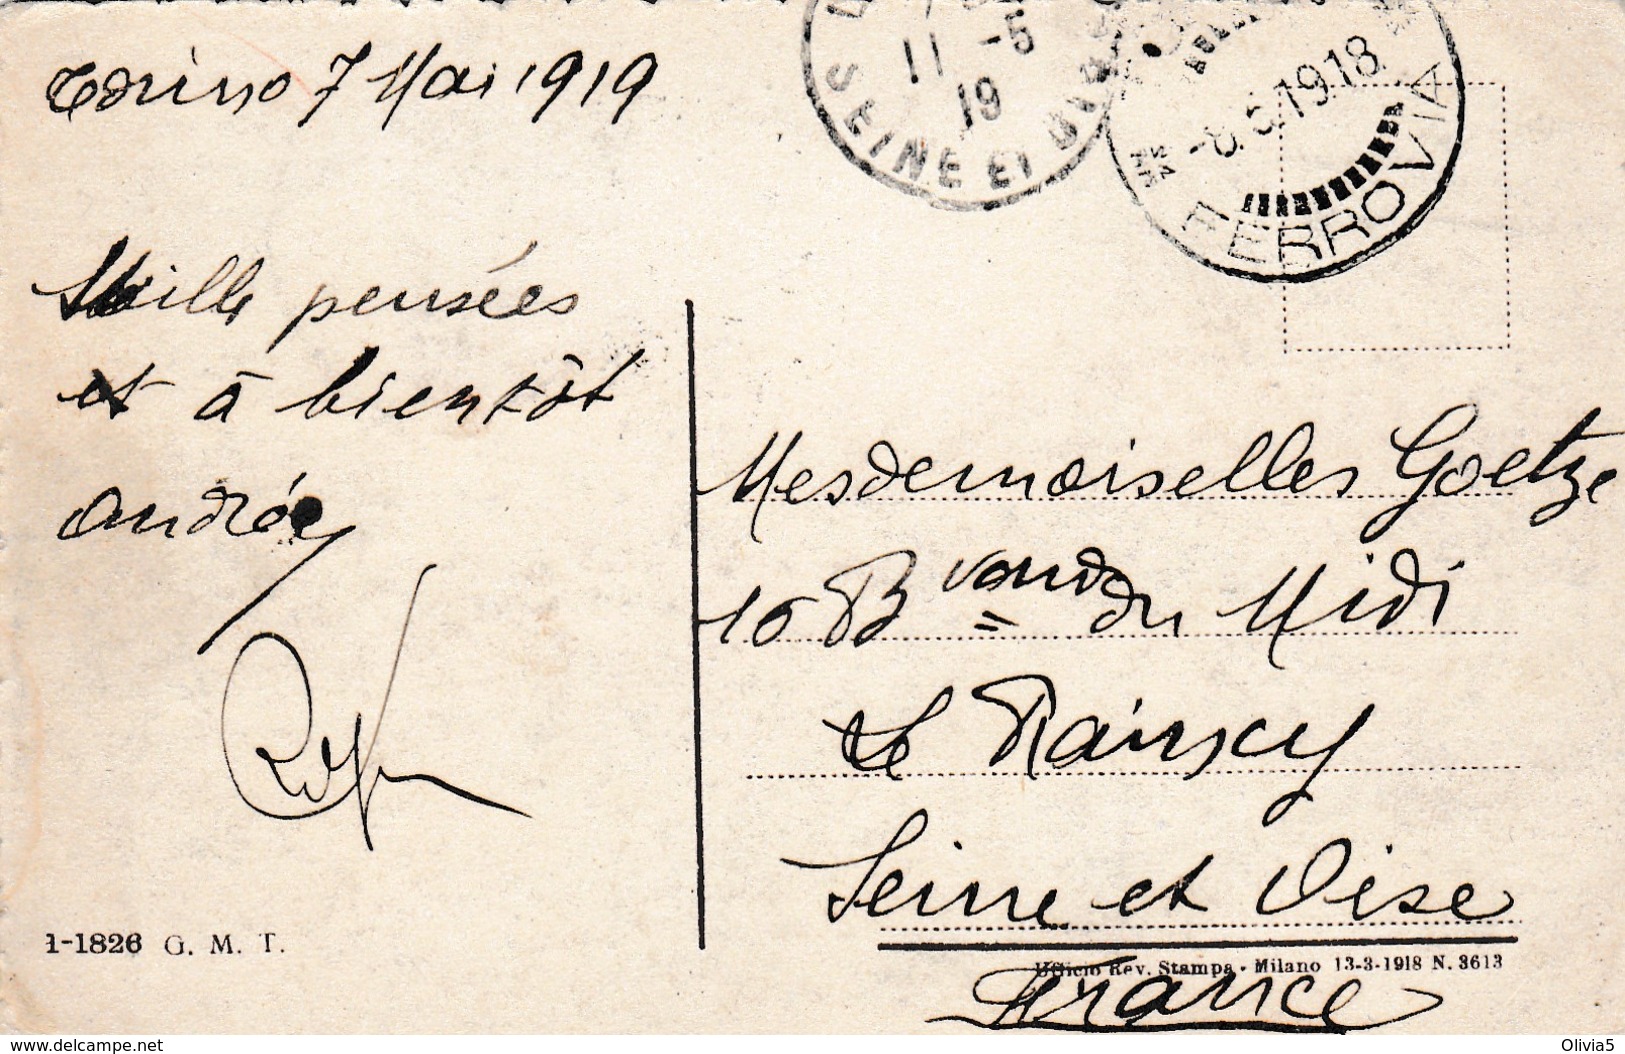 Torino 7 Mai 1919
11 -5
19
SEINE ET
-8.5.1918
FERROVIA
Mille pensées
et à bientôt
Andrée
Mesdemoiselles Goetze
16 Bvard du Midi
Le Raincy
Seine et Oise
France
1-1826 G. M. T.
Ufficio Rev. Stampa - Milano 13-3-1918 N. 3613
www.delcampe.net
Olivia5